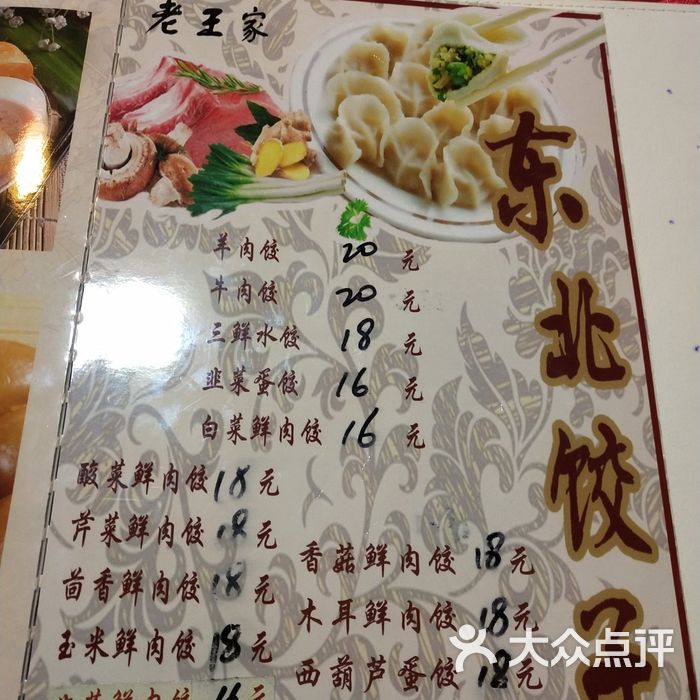 老王家
东北饺子
羊肉饺 20 元
牛肉饺 20 元
三鲜水饺 18 元
韭菜蛋饺 16 元
白菜鲜肉饺 16 元
酸菜鲜肉饺 18 元
芹菜鲜肉饺 18 元
茴香鲜肉饺 18 元
玉米鲜肉饺 18 元
香菇鲜肉饺 18 元
木耳鲜肉饺 18 元
西葫芦蛋饺 18 元
菜鲜肉饺 16 元
大众点评